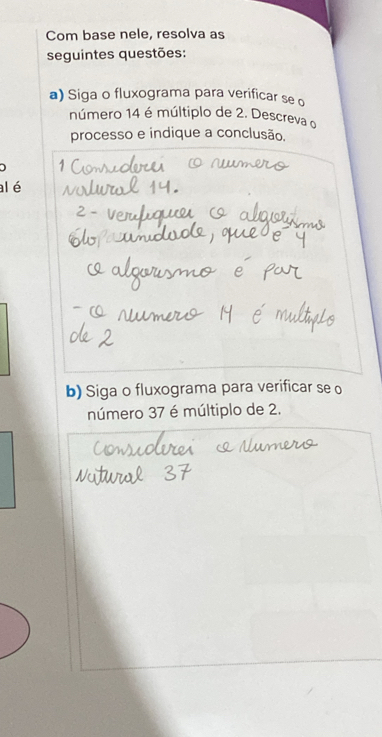 Com base nele, resolva as
seguintes questões:
a) Siga o fluxograma para verificar se o
número 14 é múltiplo de 2. Descreva o
processo e indique a conclusão.
o
al é
1 Considerei o numero
natural 14.
2- verifiquei o algarismo
da unidade, que é 4
o algarismo é par
- o numero 14 é multiplo
de 2
b) Siga o fluxograma para verificar se o
número 37 é múltiplo de 2.
considerei o numero
natural 37